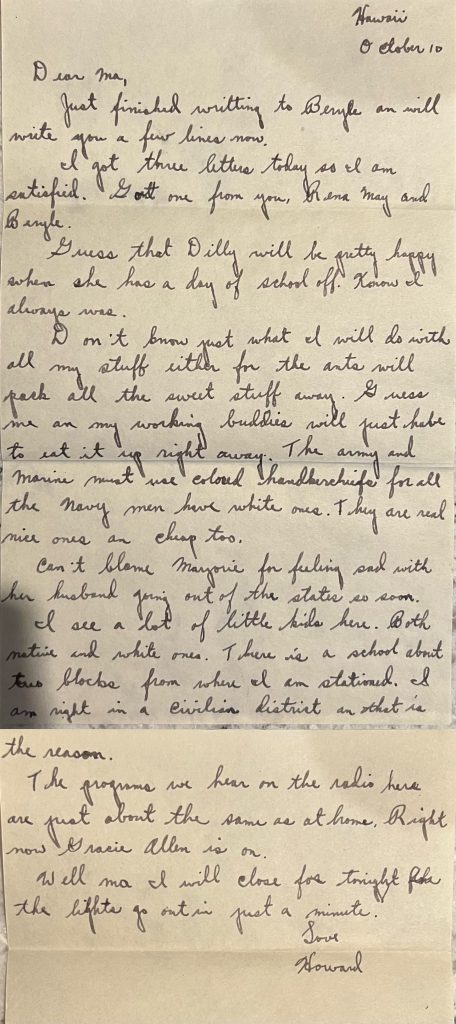 Hawaii
October 10
Dear Ma,
Just finished writting to Beryle an will
write you a few lines now.
I got three letters today so I am
satisfied. Gott one from you, Rena May and
Beryle.
Guess that Dilly will be pretty happy
when she has a day of school off. Know I
always was.
Don't know just what I will do with
all my stuff either for the ants will
pack all the sweet stuff away. Guess
me an my working buddies will just habe
to eat it up right away. The army and
Marine must use colored handkerchiefs for all
the Navy men have white ones. They are real
nice ones an cheap too.
Can't blame Marjorie for feeling sad with
her husband going out of the states so soon.
I see a lot of little kids here. Both
native and white ones. There is a school about
two blocks from where I am stationed. I
am right in a civilian district an that is
the reason.
The programs we hear on the radio here
are just about the same as at home. Right
now Gracie Allen is on.
Well ma I will close for tonight
the lights go out in just a minute.
Love
Howard